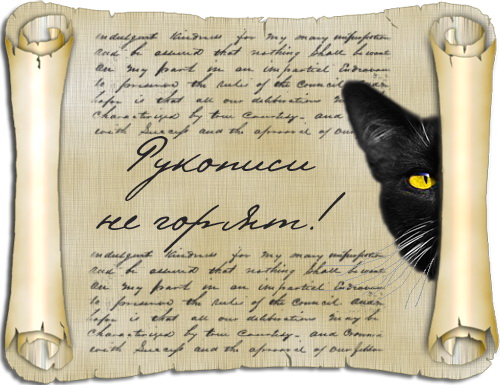 indulgent Kindness for my many
and be assured that nothing shall be want
on my part in an impartial
to preserve the rules of the Council
is that all our deliberations
Characterized by true Courtesy, and
with Success and the approval of our
Рукописи
не горят!
indulgent Kindness for my many
and be assured that nothing shall be want
on my part in an impartial
to preserve the rules of the Council
is that all our deliberations may be
Characterized by true Courtesy, and
with Success and the approval of our